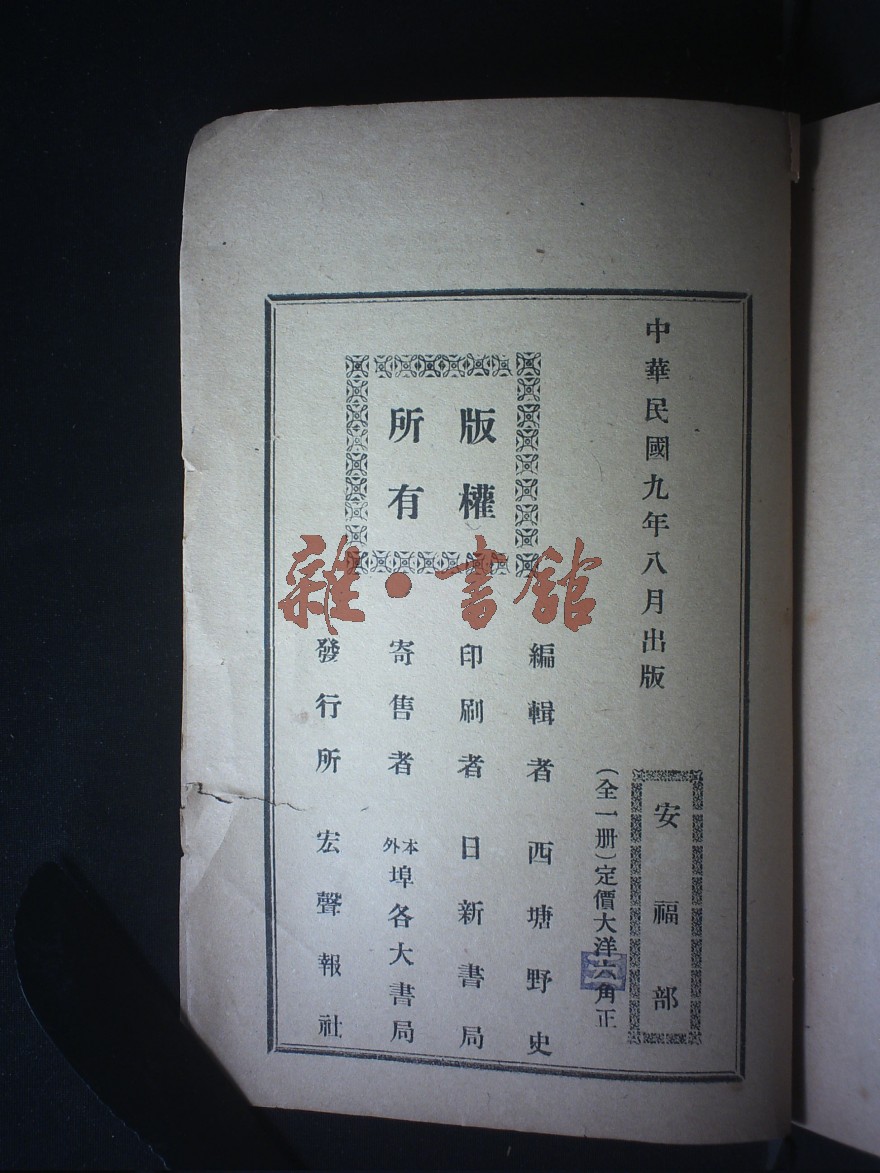 中華民國九年八月出版
安福部
(全一册)定價大洋六角正
版權
所有
編輯者 西塘野史
印刷者 日新書局
寄售者 本外埠各大書局
發行所 宏聲報社
雜·書館